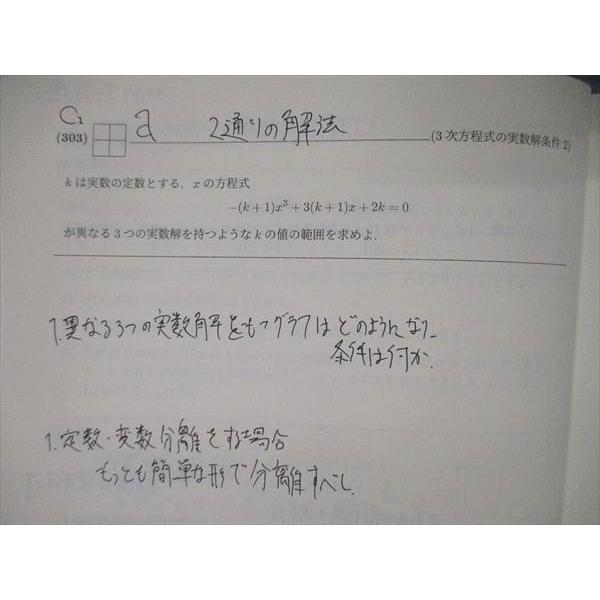 C1
(303) a 2通りの解法 (3次方程式の実数解条件2)
kは実数の定数とする. xの方程式
-(k+1)x³+3(k+1)x+2k=0
が異なる3つの実数解を持つようなkの値の範囲を求めよ.
1.異なる3つの実数解をもつグラフはどのようになり、
条件は何か.
1.定数・変数分離をする場合
もっとも簡単な形で分離すべし